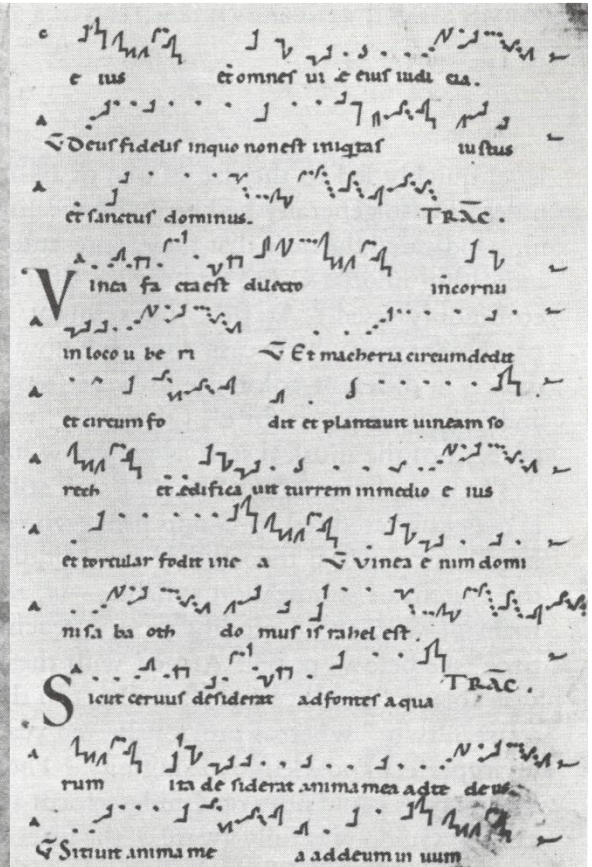 c e ius et omnes ui e eius iudi cia.
a ℣ Deus fidelis inquo non est iniqtas iustus
a et sanctus dominus. TRĀC.
a Vinea fa cta est dilecto in cornu
a in loco u be ri ℣ Et macheria circumdedit
a et circum fo dit et plantauit uineam so
a rech et edifica uit turrem inmedio e ius
a et torcular fodit ine a ℣ Vinea e nim domi
a ni sa ba oth do mus israhel est.
a Sicut ceruus desiderat ad fontes aqua TRĀC.
a rum ita de siderat anima mea adte deus.
a ℣ Sitiuit anima me a addeum in uum